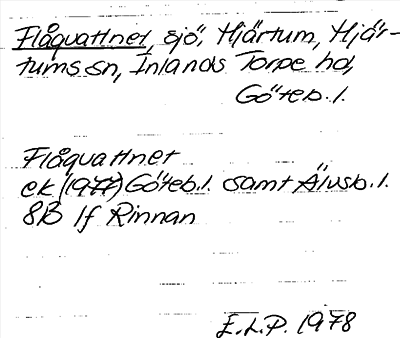 Flåquattnet, sjö, Hjärtum, Hjär-
tums sn, Inlands Torpe hd,
Göteb. l.
Flåquattnet
ek (1977) Göteb. l. samt Älvsb. l.
8B 1f Rinnan
E.L.P. 1978